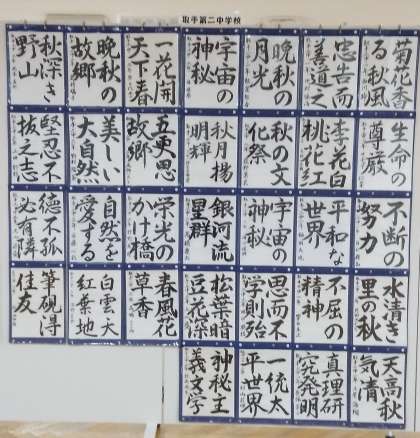 取手第二中学校
菊花香
る秋風
忠告而
善道之
晩秋の
月光
宇宙の
神秘
一花開
天下春
晩秋の
故郷
秋深き
野山
生命の
尊厳
李花白
桃花紅
秋の文
化祭
秋月揚
明輝
五更思
故郷
美しい
大自然
堅忍不
抜之志
不断の
努力
平和な
世界
宇宙の
神秘
銀河流
星群
栄光の
かけ橋
自然を
愛する
徳不孤
必有隣
水清き
里の秋
不屈の
精神
思而不
学則殆
松葉暗
豆花深
春風花
草香
白雲大
紅葉地
筆硯得
佳友
天高秋
気清
真理研
究発明
一統太
平世界
神秘主
義文学